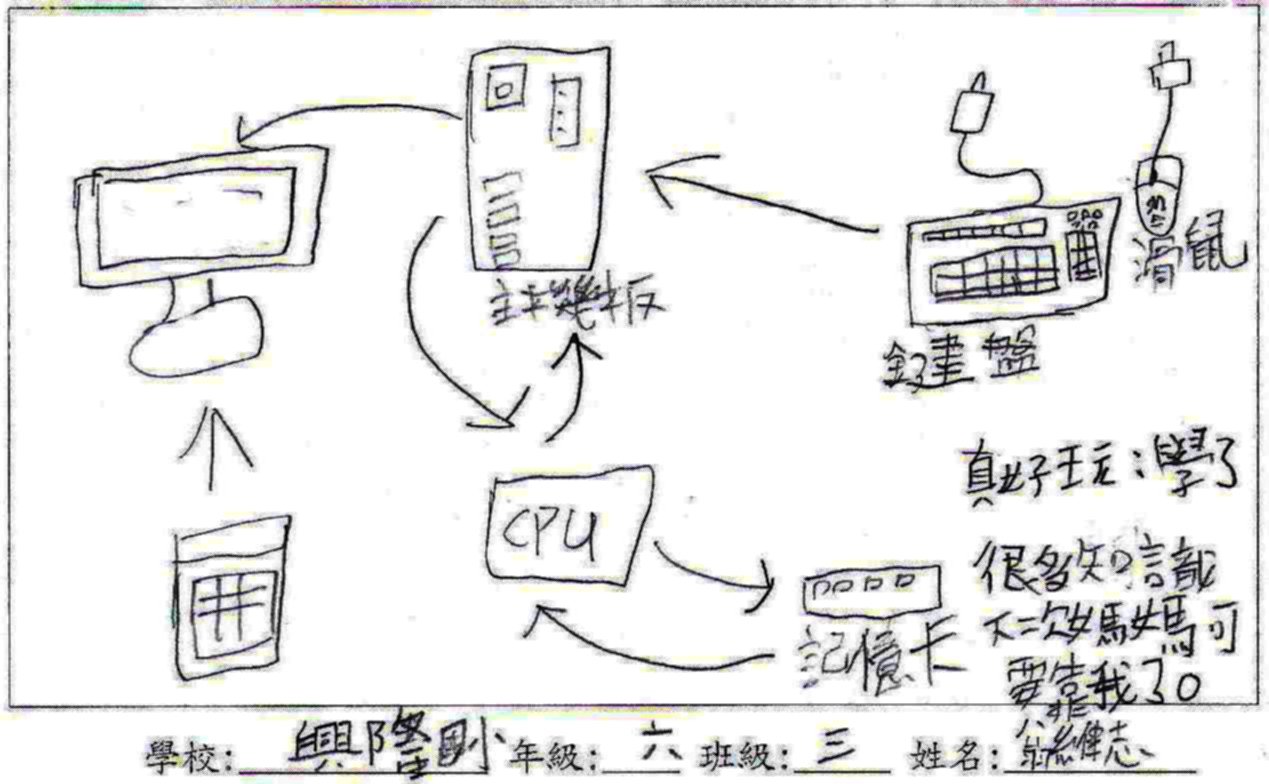 主機板
滑鼠
鍵盤
CPU
記憶卡
真好玩:學了
很多知識
下次媽媽可
要靠我了。
學校: 興隆國小 年級: 六 班級: 三 姓名: 翁維志